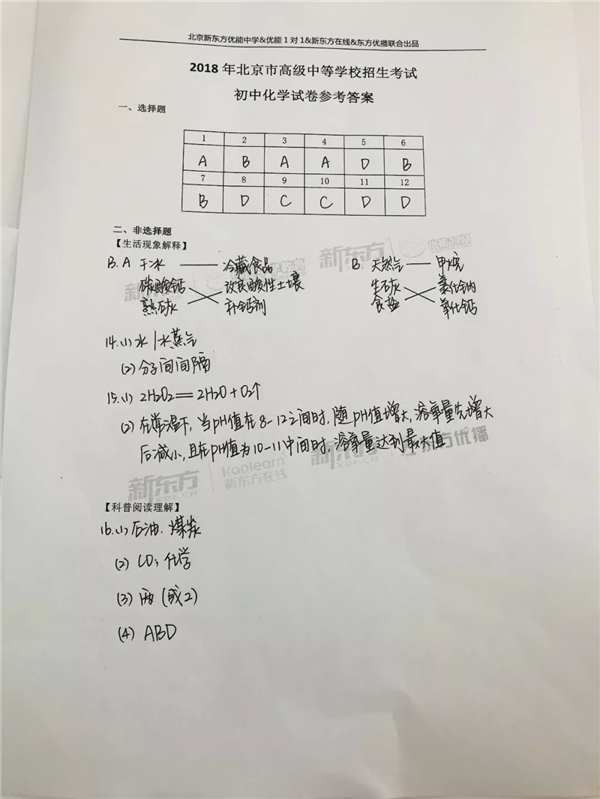 北京新东方优能中学&优能1对1&新东方在线&东方优播联合出品
2018年北京市高级中等学校招生考试
初中化学试卷参考答案
一、选择题
1 2 3 4 5 6
A B A A D B
7 8 9 10 11 12
B D C C D D
二、非选择题
【生活现象解释】
13. A 干冰 冷藏食品 B. 天然气 甲烷
碳酸钙 改良酸性土壤 生石灰 氯化钠
熟石灰 补钙剂 食盐 氧化钙
14.(1) 水/水蒸气
(2) 分子间间隔
15.(1) 2H2O2 == 2H2O + O2↑
(2) 在常温下, 当pH值在8-12之间时, 随pH值增大, 溶氧量先增大
后减小, 且在pH值为10-11中间时, 溶氧量达到最大值
新东方 XDF.CN koolearn 新东方在线 东方优播
【科普阅读理解】
16.(1) 石油、煤炭
(2) CO2 化学
(3) 两 (或2)
(4) ABD